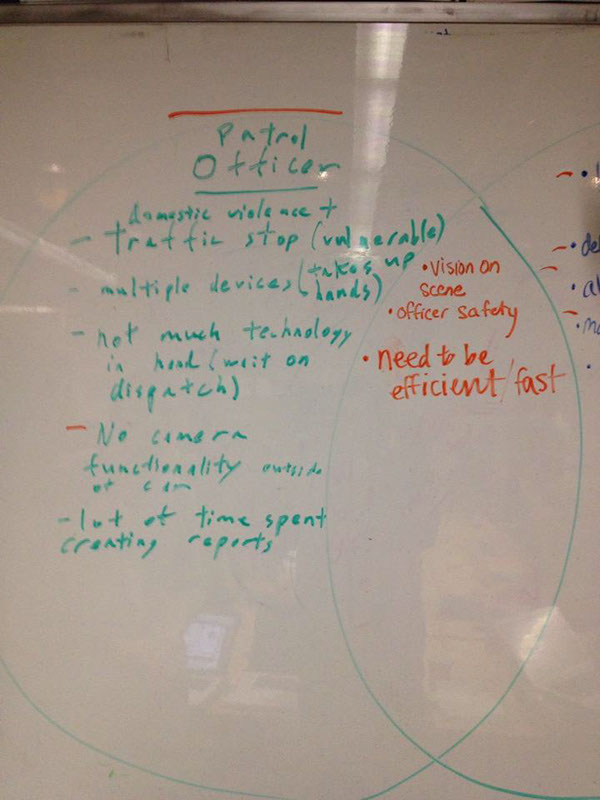 Patrol
Officer
domestic violence +
- traffic stop (vulnerable)
- multiple devices (takes up
hands)
- not much technology
in hand (wait on
dispatch)
- No camera
functionality outside
of car
- lot of time spent
creating reports
• vision on
scene
• officer safety
• need to be
efficient/fast